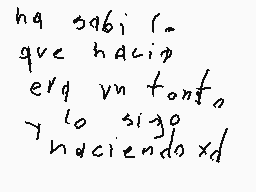 ha sabi lo
que hacia
era un tonto
y lo sigo
haciendo xd